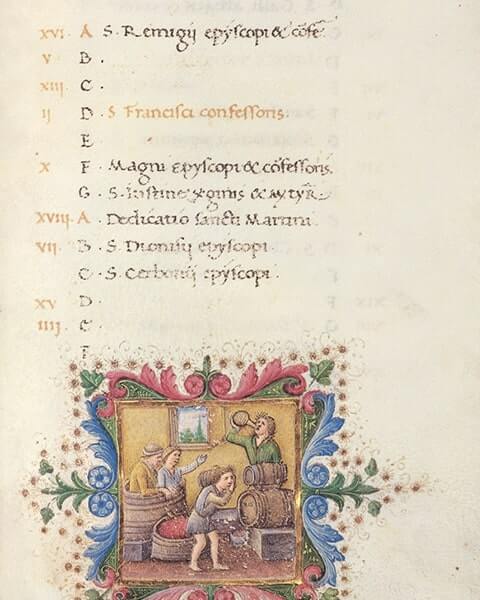 xvi A S. Remigii epyscopi & cōfe
v B .
xiii C .
ii D . S Francisci confessoris.
E .
x F . Magni epyscopi & cōfessoris.
G . S. Iustine
xviii A . Dedicatio sancti Martini
vii B . S. Dionisii epyscopi
C . S. Cerbonii epyscopi
xv D .
iiii E .
F